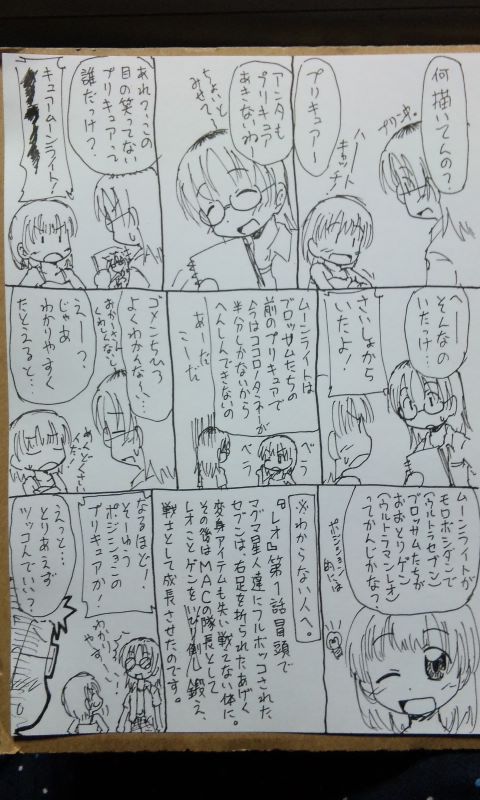 何描いてんの?
プリンカ。
ハート
キャッチ
プリキュアー
アンタも
プリキュア
あきないわ
ちょいと
みせて、
あれっ、この
目の笑ってない
プリキュアって
誰だっけ?
キュアムーンライト!
へー
そんなの
いたっけ…
さいしょから
いたよ!
ムーンライトは
ブロッサムたちの
前のプリキュアで
今はココロのタネが
半分しかないから
へんしんできないの
あーだ
こーだ
べら
べら
ゴメンちひろ
よくわかんなぃ…
おかーさん
くわしくないし
えーっ
じゃあ
わかりやすく
たとえると…
めんどくさい
なー!
ムーンライトが
モロボシダンで
(ウルトラセブン)
ブロッサムたちが
おおとりゲン
(ウルトラマンレオ)
ってかんじかな?
ポジション
的には
※わからない人へ。
『レオ』第1話冒頭で
マグマ星人達にフルボッコされた
セブンは、右足を折られたあげく
変身アイテムも失い戦えない体に。
その後はMACの隊長として
レオことゲンをいびり倒し鍛え、
戦士として成長させたのです。
なるほど!
そーゆう
ポジションの
プリキュアか!
わかり
やすーい!
えっと…
とりあえず
ツッコんでいい?